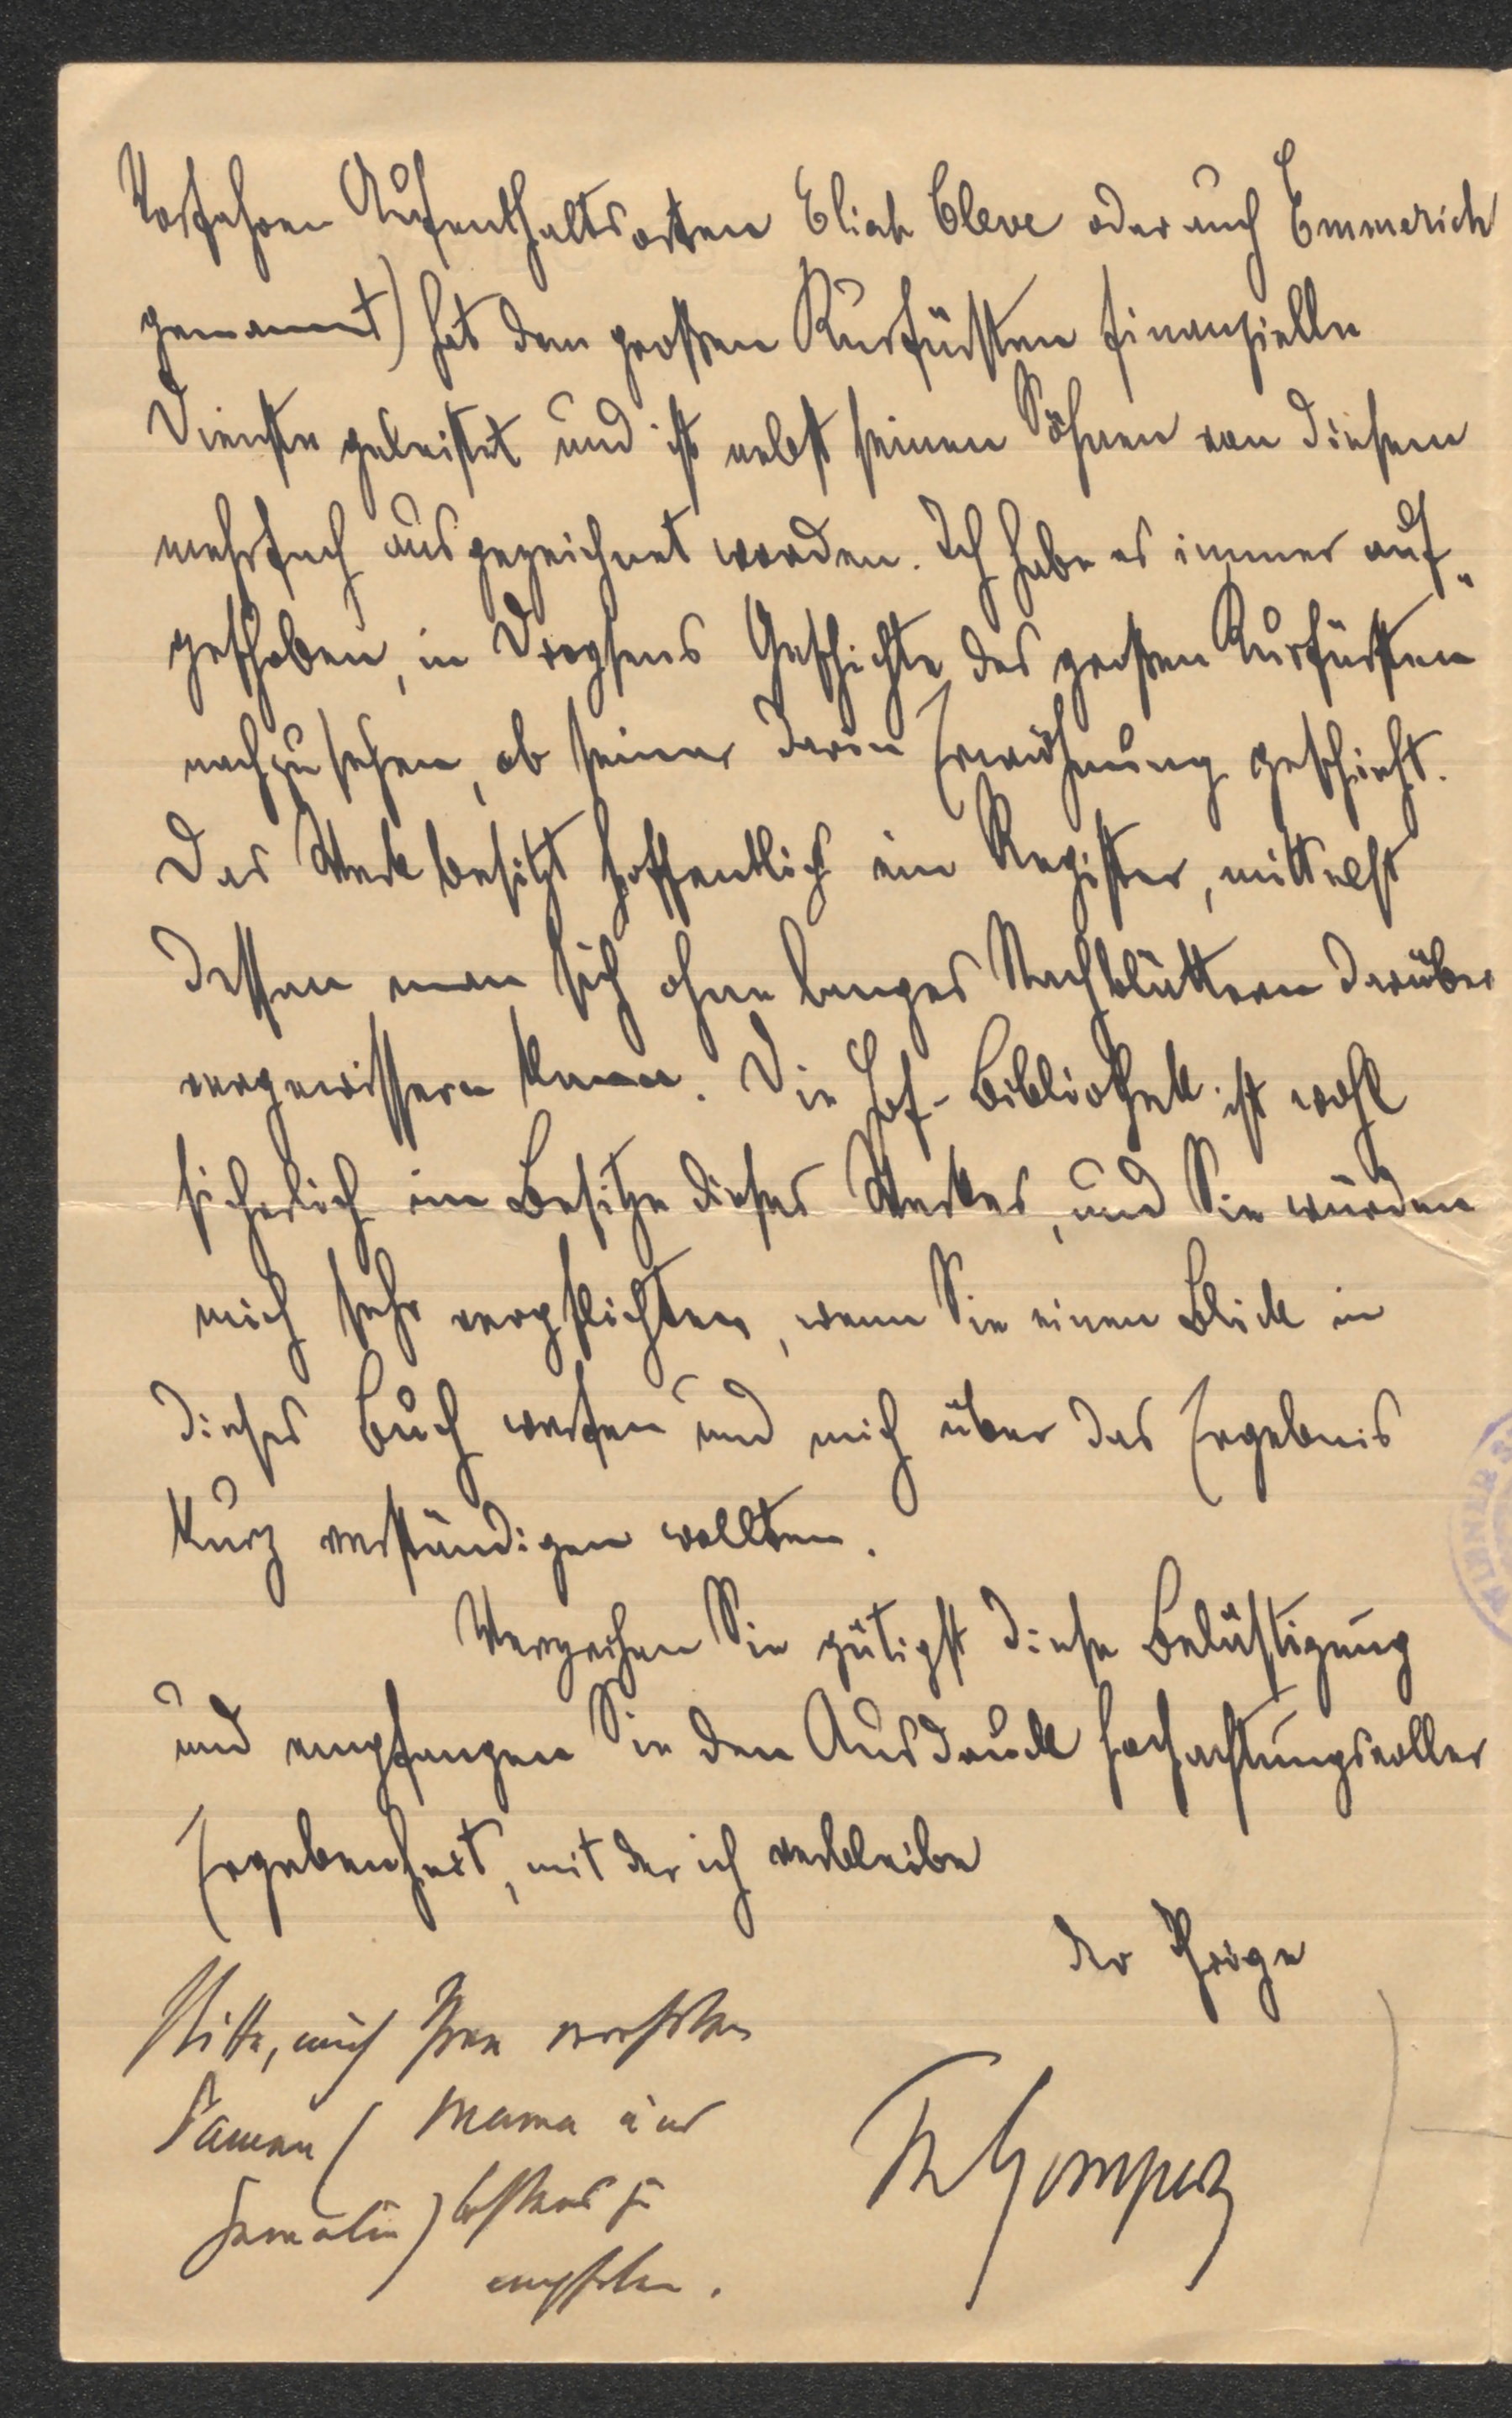 Vorfahren Aufenthaltsorten Eliah Cleve oder auch Emmerich
genannt) hat dem großen Kurfürsten finanzielle
Dienste geleistet und ist nebst seinen Söhnen von diesem
mehrfach ausgezeichnet worden. Ich habe es immer auf„
geschoben, in Droysens Geschichte des großen Kurfürsten
nachzusehen, ob seiner darin Erwähnung geschieht.
Das Werk besitzt hoffentlich ein Register, mittelst
dessen man sich ohne langes Nachblättern darüber
vergewissern kann. Die Hof-Bibliothek ist wohl
sicherlich im Besitze dieses Werkes, und Sie würden
mich sehr verpflichten, wenn Sie einen Blick in
dieses Buch werfen und mich über das Ergebnis
kurz verständigen wollten.
Verzeihen Sie gütigst diese Belästigung
und empfangen Sie den Ausdruck hochachtungsvoller
Ergebenheit, mit der ich verbleibe
der Ihrige
Bitte, mich Ihren verehrten
Damen (Mama und
Gemalin) bestens zu
empfehlen.
Th Gomperz
WIENER